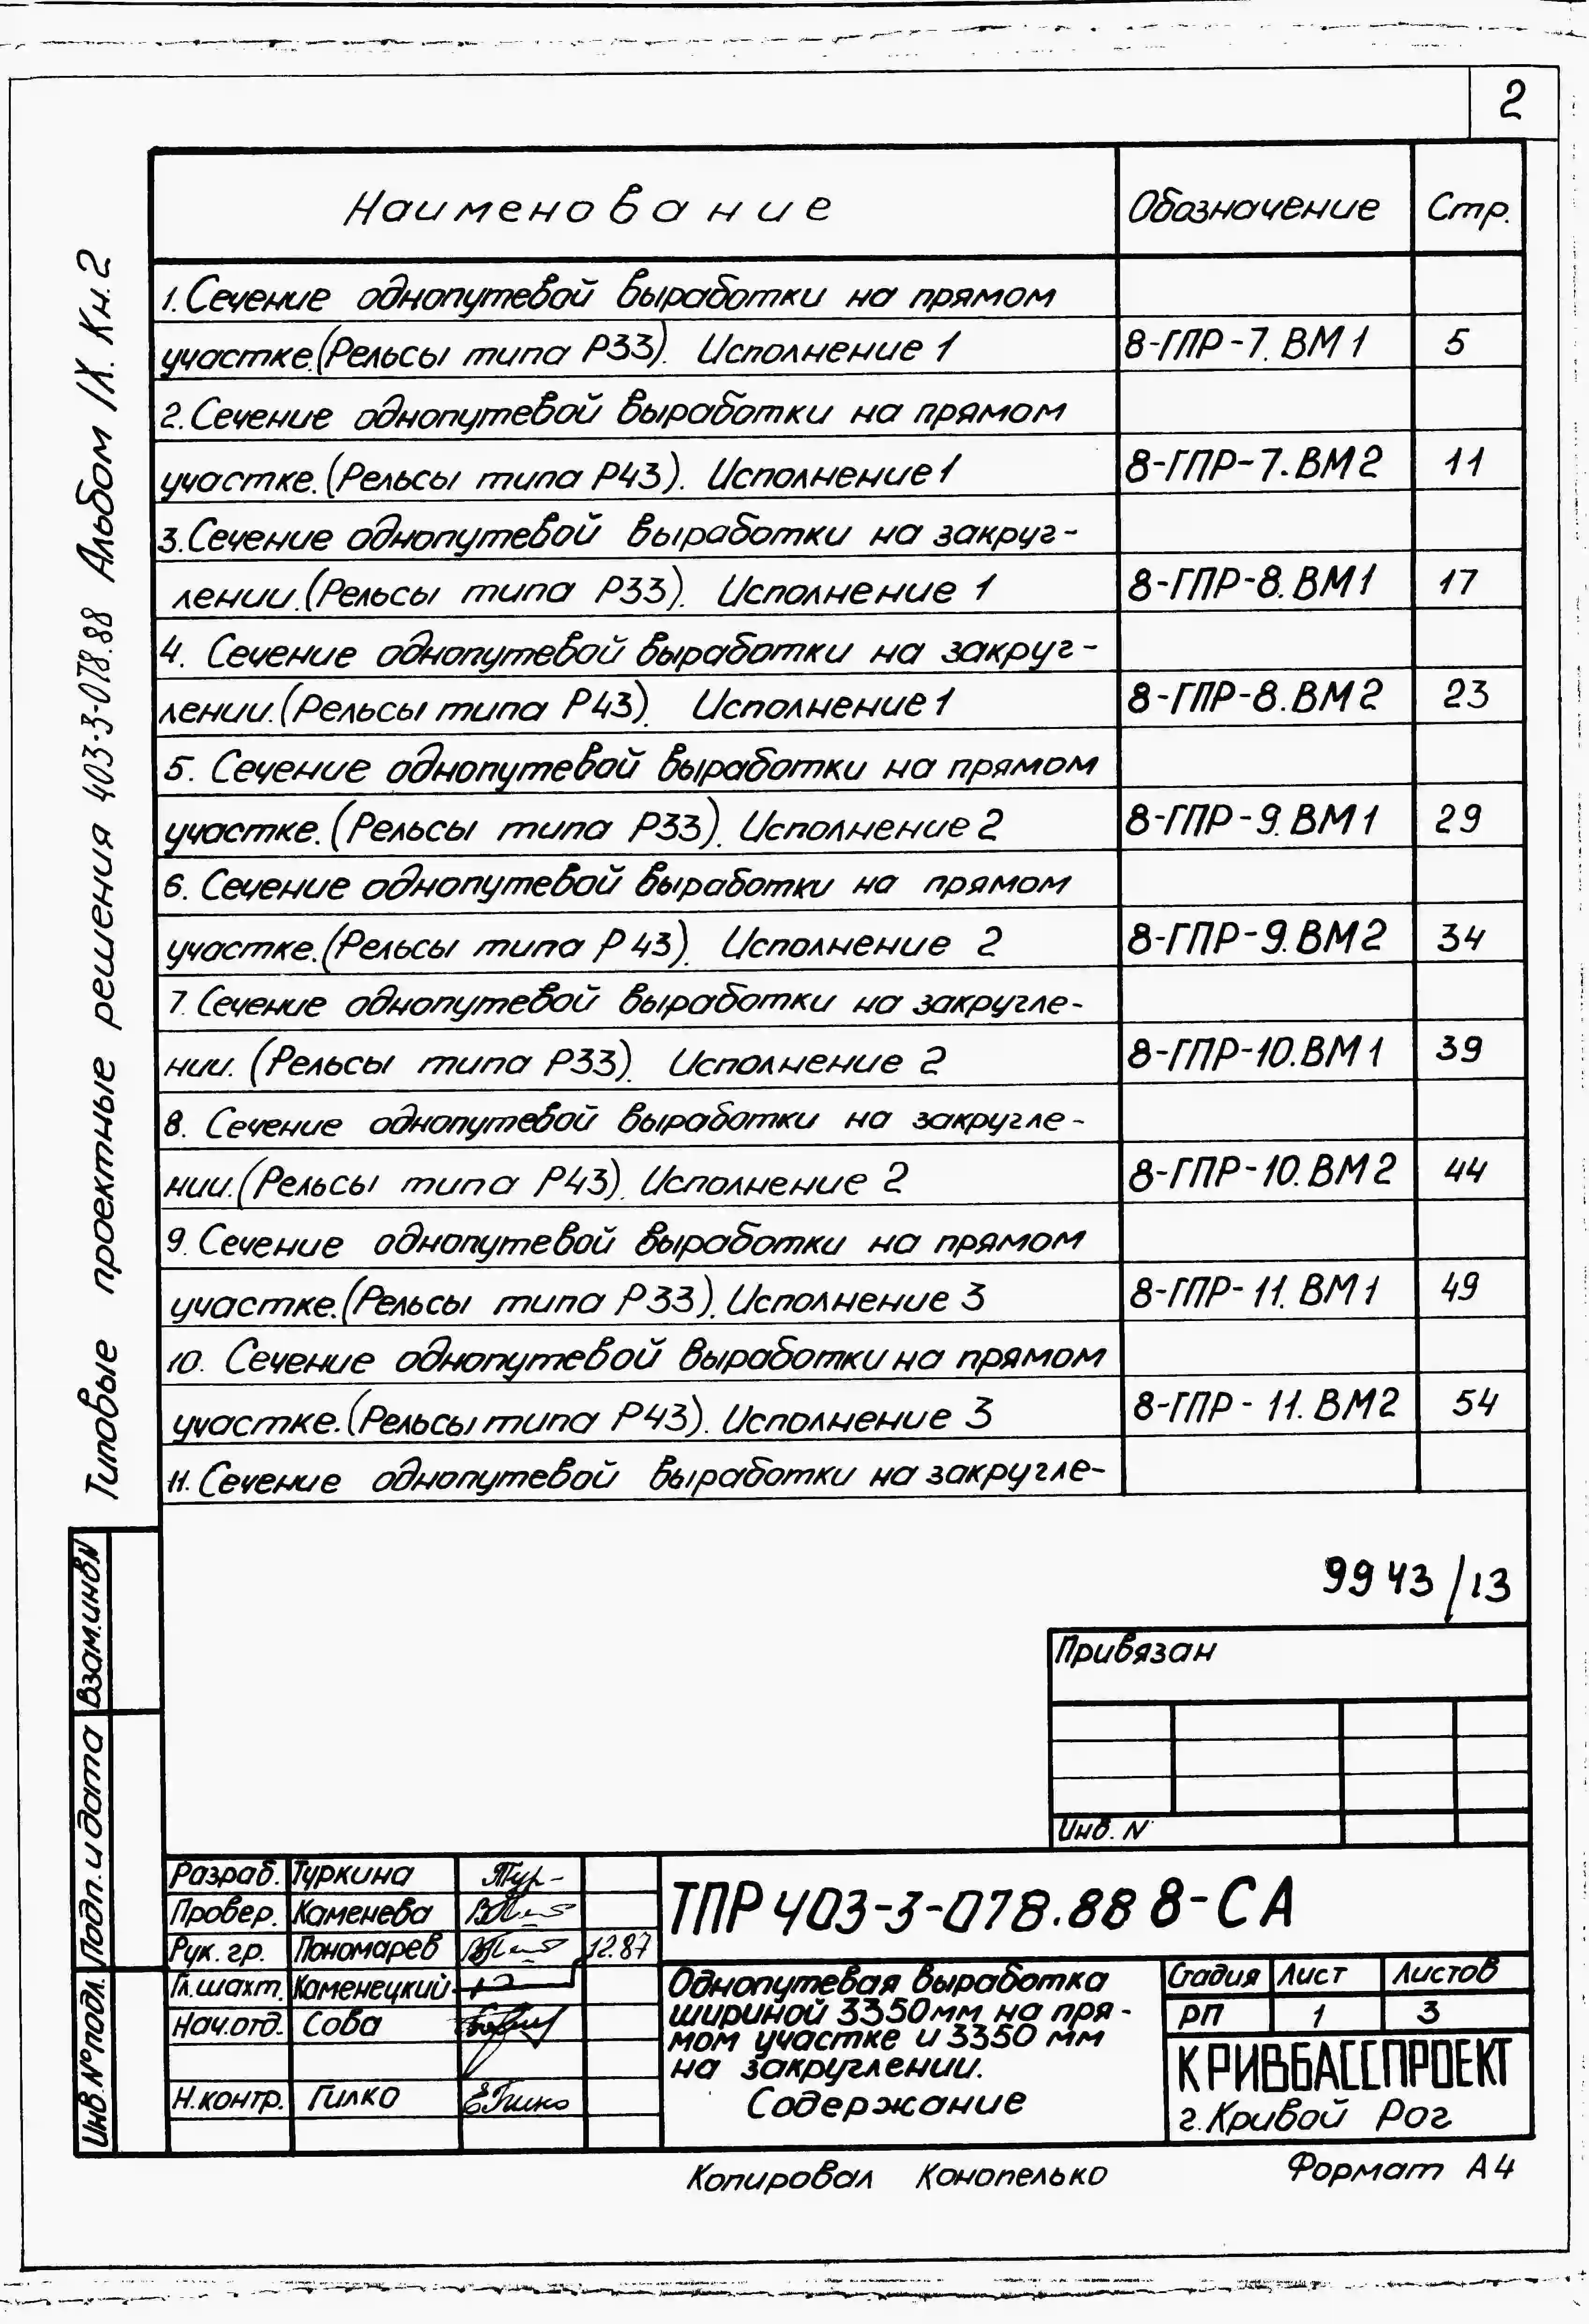 2
Наименование Обозначение Стр.
1. Сечение однопутевой выработки на прямом
участке. (Рельсы типа Р33). Исполнение 1 8-ГПР-7.ВМ1 5
2. Сечение однопутевой выработки на прямом
участке. (Рельсы типа Р43). Исполнение 1 8-ГПР-7.ВМ2 11
3. Сечение однопутевой выработки на закруг-
лении. (Рельсы типа Р33). Исполнение 1 8-ГПР-8.ВМ1 17
4. Сечение однопутевой выработки на закруг-
лении. (Рельсы типа Р43). Исполнение 1 8-ГПР-8.ВМ2 23
5. Сечение однопутевой выработки на прямом
участке. (Рельсы типа Р33). Исполнение 2 8-ГПР-9.ВМ1 29
6. Сечение однопутевой выработки на прямом
участке. (Рельсы типа Р43). Исполнение 2 8-ГПР-9.ВМ2 34
7. Сечение однопутевой выработки на закругле-
нии. (Рельсы типа Р33). Исполнение 2 8-ГПР-10.ВМ1 39
8. Сечение однопутевой выработки на закругле-
нии. (Рельсы типа Р43). Исполнение 2 8-ГПР-10.ВМ2 44
9. Сечение однопутевой выработки на прямом
участке. (Рельсы типа Р33). Исполнение 3 8-ГПР-11.ВМ1 49
10. Сечение однопутевой выработки на прямом
участке. (Рельсы типа Р43). Исполнение 3 8-ГПР-11.ВМ2 54
11. Сечение однопутевой выработки на закругле-
Типовые проектные решения 403-3-078.88 Альбом IX. Кн.2
9943/13
Привязан
Инв. N
Взам.инв.N
Подп. и дата
Инв.№ подл.
Разраб. Туркина
Провер. Каменева
Рук. гр. Пономарев 12.87
Гл.шахт. Каменецкий
Нач.отд. Сова
Н.контр. Гилко
ТПР 403-3-078.88 8-СА
Однопутевая выработка
шириной 3350мм на пря-
мом участке и 3350 мм
на закруглении.
Содержание
Стадия Лист Листов
РП 1 3
КРИВБАССПРОЕКТ
г.Кривой Рог
Копировал Конопелько Формат А4